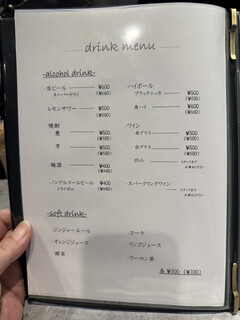 drink menu
-alcohol drink-
・生ビール ¥600
スーパードライ (¥660)
・レモンサワー ¥500
(¥550)
・焼酎
麦 ¥500
(¥550)
芋 ¥500
(¥550)
・梅酒 ¥400
(¥440)
・ノンアルコールビール ¥400
ドライゼロ (¥440)
・ハイボール
ブラックニッカ ¥500
(¥550)
角ハイ ¥600
(¥660)
・ワイン
赤グラス ¥500
(¥550)
白グラス ¥500
(¥550)
ボトル スタッフまで
お尋ねください
・スパークリングワイン スタッフまで
お尋ねください
-soft drink-
・ジンジャーエール
・オレンジジュース
・緑茶
・コーラ
・リンゴジュース
・ウーロン茶
各 ¥300 (¥330)